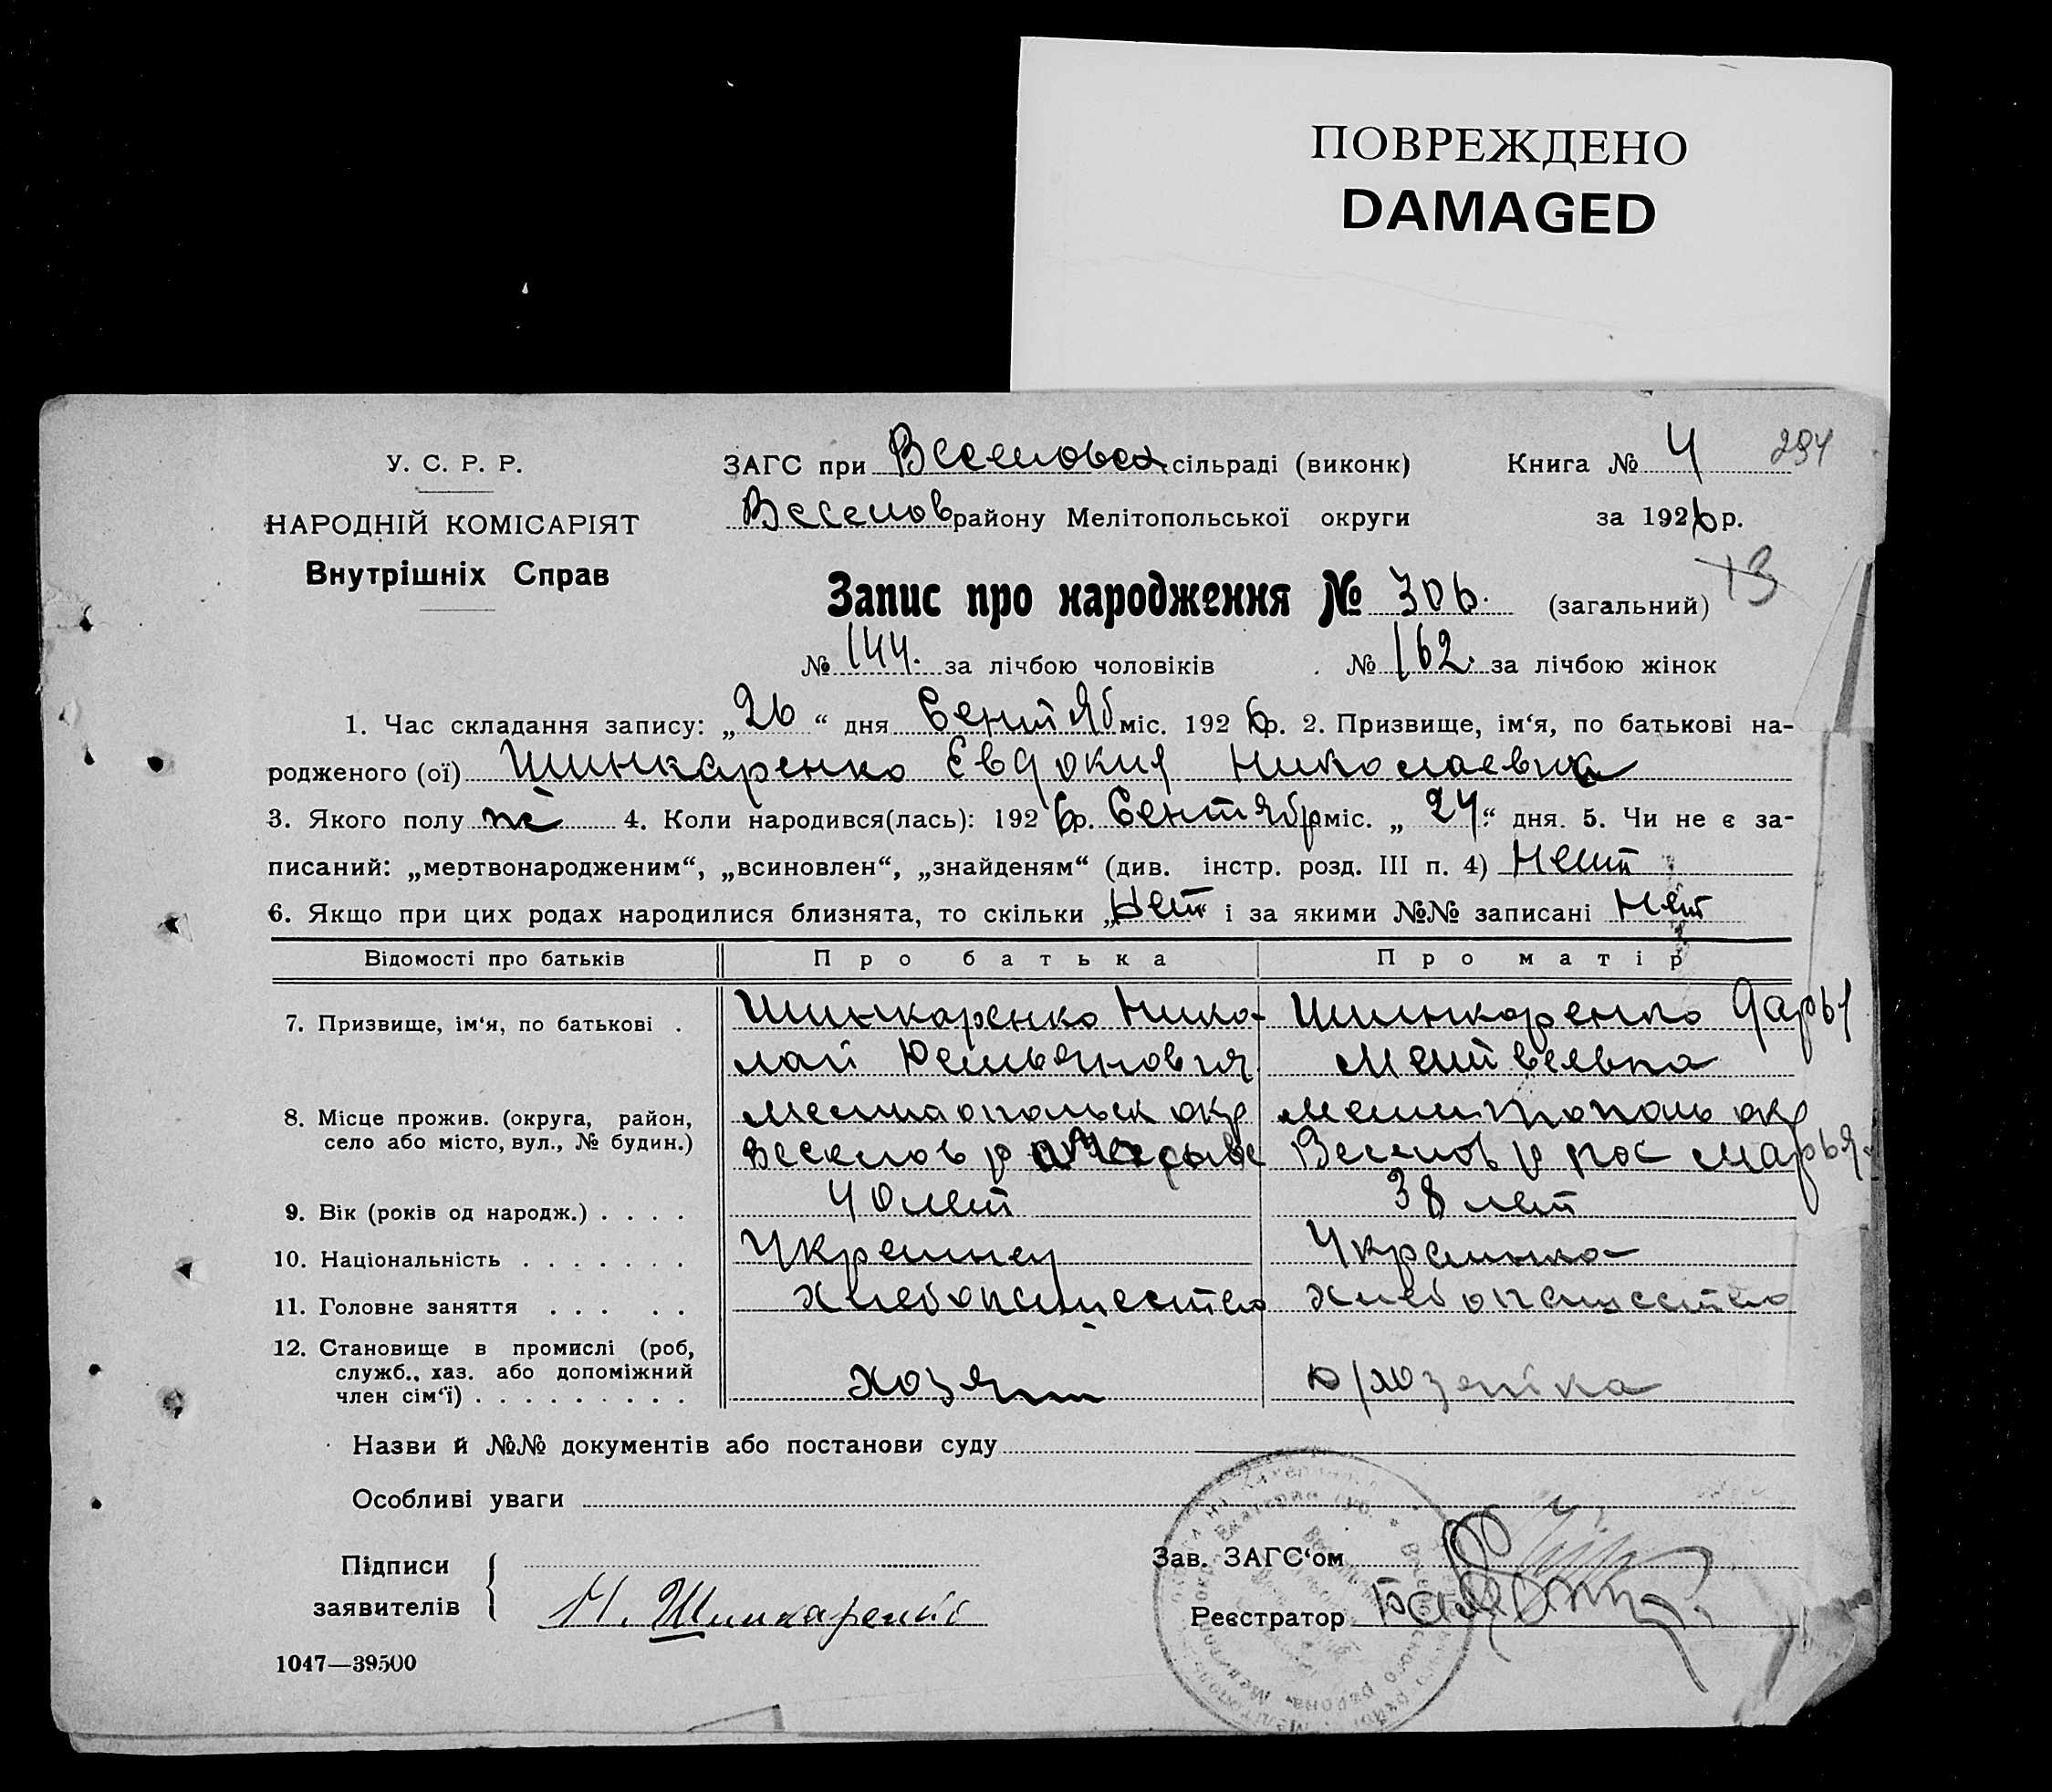 ПОВРЕЖДЕНО
DAMAGED
У. С. Р. Р.
НАРОДНІЙ КОМІСАРІЯТ
Внутрішніх Справ
ЗАГС при Веселовск сільраді (виконк)
Книга № 4 294
Веселов району Мелітопольської округи
за 1926 р.
13
Запис про народження № 306. (загальний)
№ 144. за лічбою чоловіків № 162. за лічбою жінок
1. Час складання запису: „26“ дня Сентяб міс. 1926 р. 2. Призвище, ім‘я, по батькові на-
родженого (ої) Шинкаренко Евдокия Николаевна
3. Якого полу ж 4. Коли народився(лась): 1926 р. Сентябр міс. „24“ дня. 5. Чи не є за-
писаний: „мертвонародженим“, „всиновлен“, „знайденям“ (див. інстр. розд. III п. 4) Нет
6. Якщо при цих родах народилися близнята, то скільки „Нет“ і за якими №№ записані Нет
Відомості про батьків Про батька Про матір
7. Призвище, ім‘я, по батькові . Шинкаренко Нико- Шинкаренко Дарья
лай Матвеевна
8. Місце прожив. (округа, район, окр Мелитополь окр
село або місто, вул., № будин.) Веселов р Веселов р пос Марья
9. Вік (років од народж.) . . . . 40 лет 38 лет
10. Національність . . . . . . . Украинец Украинка
11. Головне заняття . . . . . Хлебопашество Хлебопашество
12. Становище в промислі (роб,
служб., хаз. або допоміжний
член сім‘ї) . . . . . . . . . хозяин
Назви й №№ документів або постанови суду
Особливі уваги
Підписи
заявителів
Н. Шинкаренко
Зав. ЗАГС‘ом
Реєстратор
1047—39500